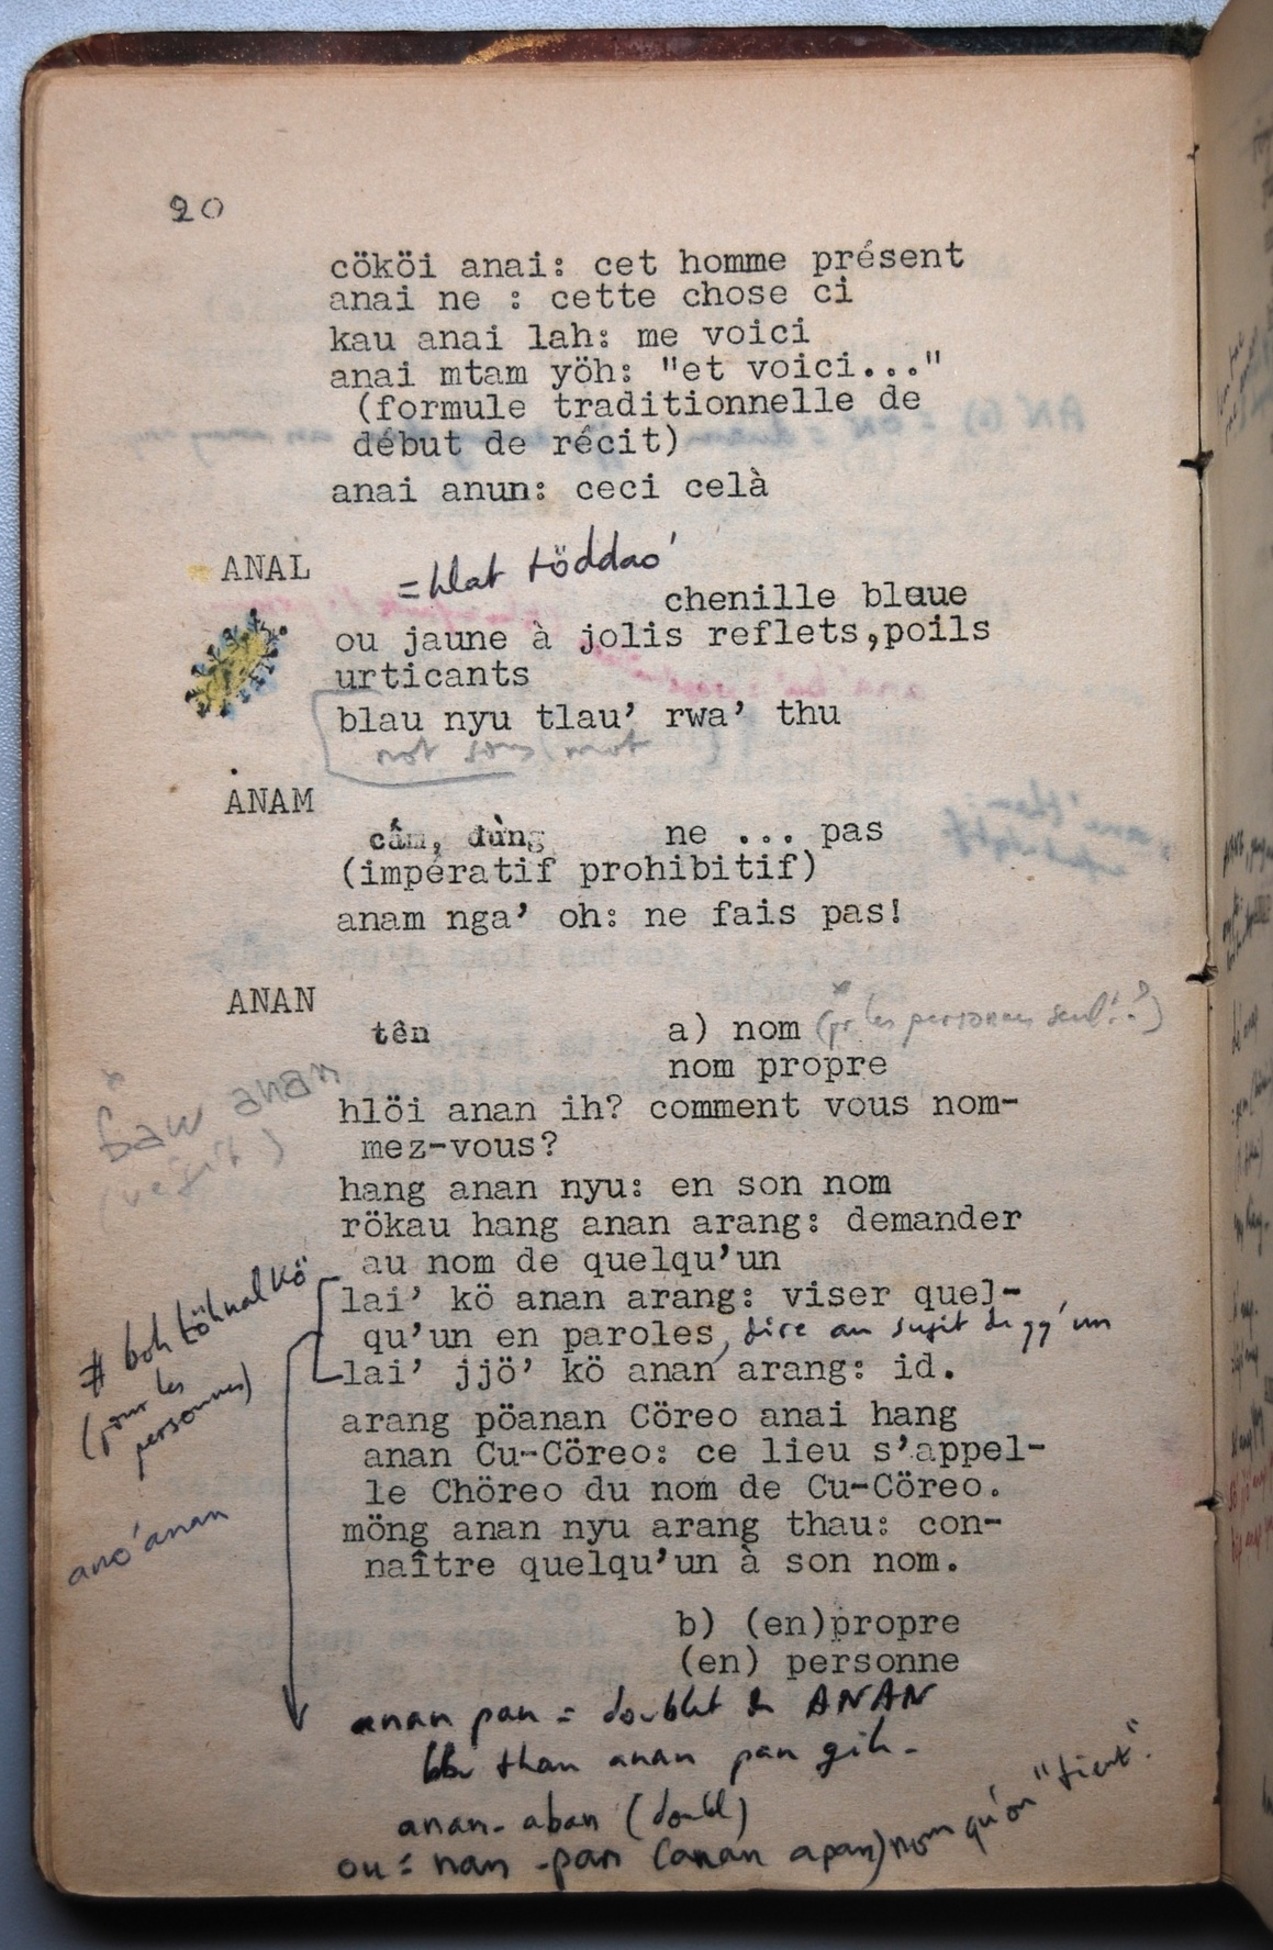 20
cököi anai: cet homme présent
anai ne : cette chose ci
kau anai lah: me voici
anai mtam yöh: "et voici..."
(formule traditionnelle de
début de récit)
anai anun: ceci celà
ANAL
= hlat töddao'
chenille bleue
ou jaune à jolis reflets,poils
urticants
blau nyu tlau' rwa' thu
not sous mot
ANAM
cấm, đừng ne ... pas
(impératif prohibitif)
anam nga' oh: ne fais pas!
ANAN
tên a) nom (pr les personnes seult?)
nom propre
anan
hlöi anan ih? comment vous nom-
mez-vous?
hang anan nyu: en son nom
rökau hang anan arang: demander
au nom de quelqu'un
lai' kö anan arang: viser quel-
qu'un en paroles, dire au sujet de qq'un
lai' jjö' kö anan arang: id.
# boh töhnal kö
(pour les
personnes)
arang pöanan Cöreo anai hang
anan Cu-Cöreo: ce lieu s'appel-
le Chöreo du nom de Cu-Cöreo.
möng anan nyu arang thau: con-
naître quelqu'un à son nom.
ano' anan
b) (en)propre
(en) personne
anan pan = doublet de ANAN
than anan pan gih.
anan- aban (doubl)
ou = nan -pan (anan apan) nom qu'on "tient".